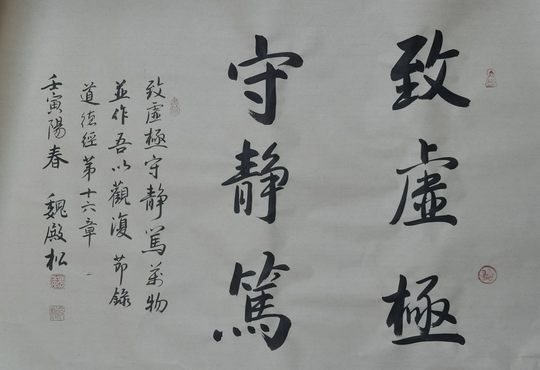 致虛極
守静篤
致虛極守静篤萬物
並作吾以觀復節錄
道德經第十六章
壬寅陽春 魏殿松